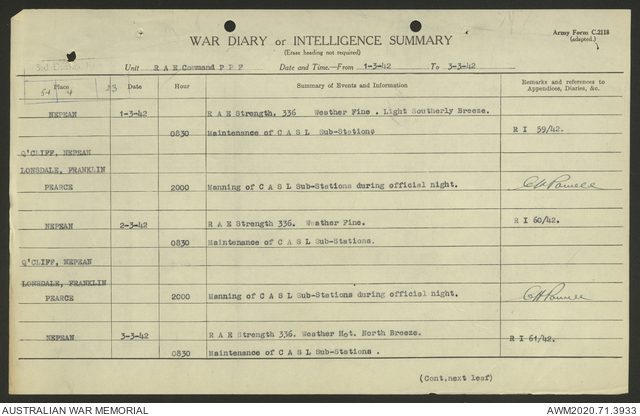 WAR DIARY or INTELLIGENCE SUMMARY
(Erase heading not required)
Army Form C.2118
(adapted.)
Unit R A E Command P P F Date and Time.—From 1-3-42 To 3-3-42
Place Date Hour Summary of Events and Information Remarks and references to Appendices, Diaries, &c.
54 4 23
NEPEAN 1-3-42 R A E Strength. 336 Weather Fine . Light Southerly Breeze.
0830 Maintenance of C A S L Sub-Stations R I 59/42.
Q'CLIFF, NEPEAN
LONSDALE, FRANKLIN
PEARCE 2000 Manning of C A S L Sub-Stations during official night. C H Powell
NEPEAN 2-3-42 R A E Strength 336. Weather Fine. R I 60/42.
0830 Maintenance of C A S L Sub-Stations.
Q'CLIFF, NEPEAN
LONSDALE, FRANKLIN
PEARCE 2000 Manning of C A S L Sub-Stations during official night. C H Powell
NEPEAN 3-3-42 R A E Strength 336. Weather Hot. North Breeze. R I 61/42.
0830 Maintenance of C A S L Sub-Stations .
(Cont.next leaf)
AUSTRALIAN WAR MEMORIAL AWM2020.71.3933